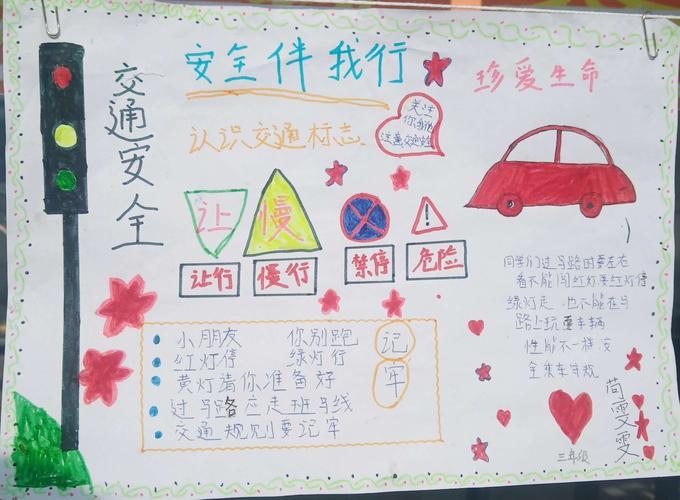 交通安全
安全伴我行
珍爱生命
认识交通标志
关注
你我他
交通安全
让
慢
让行
慢行
禁停
危险
小朋友 你别跑
红灯停 绿灯行
黄灯请你准备好
过马路应走班马线
交通规则要记牢
记
牢
同学们过马路时要左右
看不能闯红灯要红灯停
绿灯走 也不能在马
路上玩 车辆
性能不一样 安
全乘车
三年级
苟雯雯